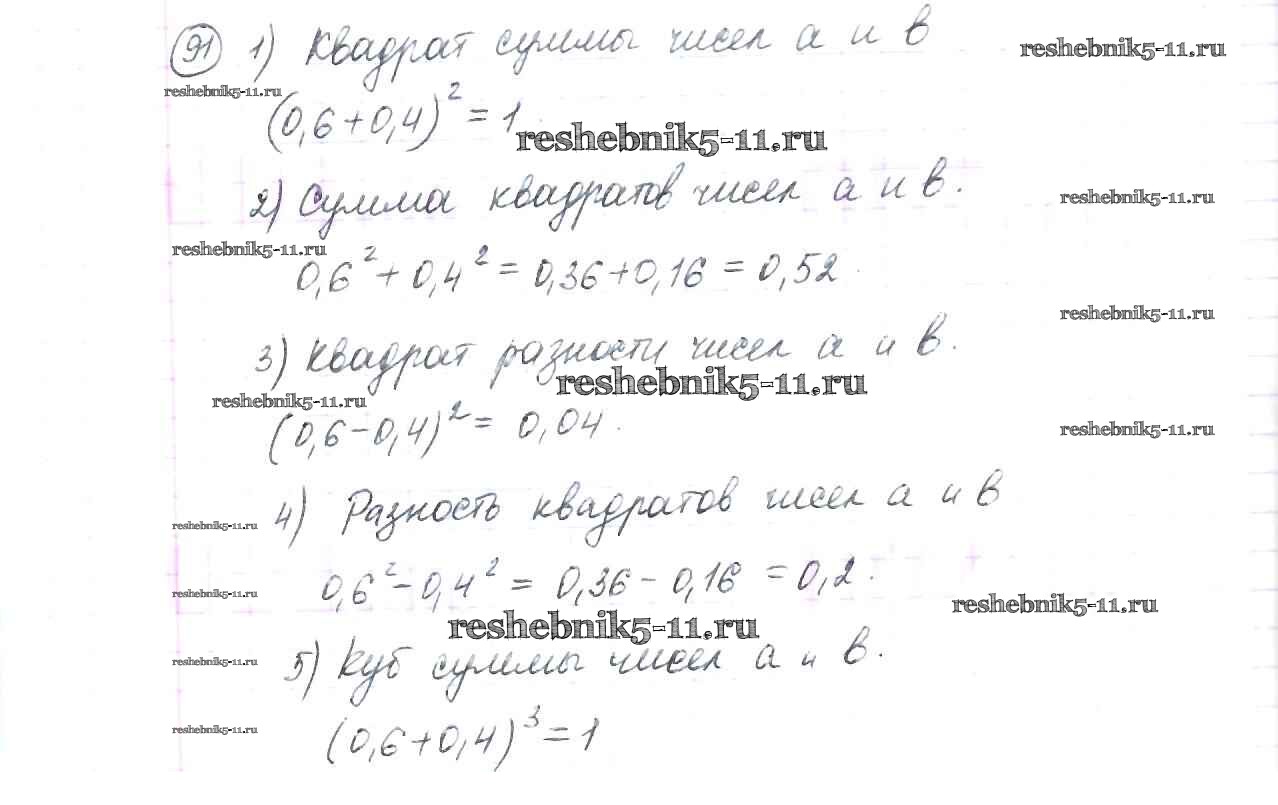 91 1) Квадрат суммы чисел а и в
reshebnik5-11.ru
reshebnik5-11.ru
(0,6+0,4)² = 1
reshebnik5-11.ru
2) Сумма квадратов чисел а и в.
reshebnik5-11.ru
reshebnik5-11.ru
0,6² + 0,4² = 0,36+0,16 = 0,52.
reshebnik5-11.ru
3) Квадрат разности чисел а и в.
reshebnik5-11.ru
reshebnik5-11.ru
(0,6-0,4)² = 0,04.
reshebnik5-11.ru
4) Разность квадратов чисел а и в
reshebnik5-11.ru
0,6² - 0,4² = 0,36 - 0,16 = 0,2.
reshebnik5-11.ru
reshebnik5-11.ru
reshebnik5-11.ru
5) Куб суммы чисел а и в.
reshebnik5-11.ru
(0,6+0,4)³ = 1
reshebnik5-11.ru